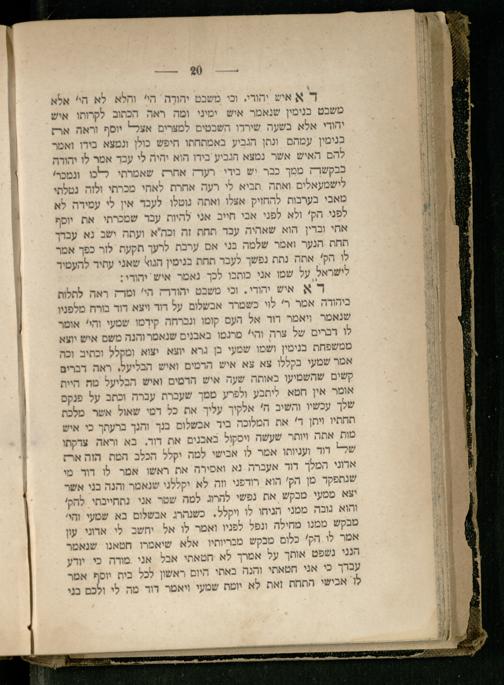 — 20 —
ד״א איש יהודי. וכי משבט יהודה הי׳ והלא לא הי׳ אלא
משבט בנימין שנאמר איש ימיני ומה ראה הכתוב לקרותו איש
יהודי אלא בשעה שירדו השבטים למצרים אצל יוסף וראה את
בנימין עמהם ונתן הגביע באמתחתו חיפש כולן ונמצא בידו ואמר
להם האיש אשר נמצא הגביע בידו הוא יהיה לי עבד אמר לו יהודה
בבקשה ממך כבר יש בידי רעה אחת שאמרתי לכו ונמכר׳
לישמעאלים ואתה תביא לי רעה אחרת לאחי מכרתי ולזה נטלתי
מאבי בערבות להחזיק אצלו ואתה נוטלו לעבד אין לי עמידה לא
לפני הק׳ ולא לפני אבי חייב אני להיות עבד שמכרתי את יוסף
אחי ובדין הוא שאהיה עבד תחת זה וכה״א ועתה ישב נא עבדך
תחת הנער ואמר שלמה בני אם ערבת לרעך תקעת לזר כפך אמר
לו הק׳ אתה נתת נפשך לעבד תחת בנימין הגוא׳ שאני עתיד להעמיד
לישראל על שמו אני כותבו לכך נאמר איש יהודי:
ד״א איש יהודי. וכי משבט יהודה הי׳ ומה ראה להתלות
ביהודה אמר ר׳ לוי כשמרד אבשלום על דוד ויצא דוד בורח מלפניו
שנאמר ויאמר דוד אל העם קומו ונברחה קידמו שמעי והי׳ אומר
לו דברים של צרה והי׳ מרגמו באבנים שנאמר והנה משם איש יוצא
ממשפחת בנימין ושמו שמעי בן גרא יוצא יצוא ומקלל וכתיב וכה
אמר שמעי בקללו צא צא איש הדמים ואיש הבליעל. ראה דברים
קשים שהשמיעו באותה שעה איש הדמים ואיש הבליעל מה היית
אומר אין חטא ליתבע ולפרע ממך שעברת עברה וכתב על פנקס
שלך עכשיו והשיב ה׳ אלקיך עליך את כל דמי שאול אשר מלכת
תחתיו ויתן ד׳ את המלוכה ביד אבשלום בנך והנך ברעתך כי איש
מות אתה ויותר שעשה ויסקול באבנים את דוד. בא וראה צדקתו
של דוד וענותו אמר לו אבישי למה יקלל הכלב המת הזה את
אדוני המלך דוד אעברה נא ואסירה את ראשו אמר לו דוד מי
שנתפקד מן הק׳ הוא רודפני וזה לא יקללני שנאמר והנה בני אשר
יצא ממעי מבקש את נפשי להרוג למה שטר אני נתחייבתי להק׳
והוא גובה ממני הניחו לו ויקלל. כשנהרג אבשלום בא שמעי והי׳
מבקש ממנו מחילה ונפל לפניו ואמר לו אל יחשב לי אדוני עון
אמר לו הק׳ כלום מבקש מבריותיו אלא שיאמרו חטאנו שנאמר
הנני נשפט אותך על אמרך לא חטאתי אבל אני מודה כי יודע
עבדך כי אני חטאתי והנה באתי היום ראשון לכל בית יוסף אמר
לו אבישי התחת זאת לא יומת שמעי ויאמר דוד מה לי ולכם בני